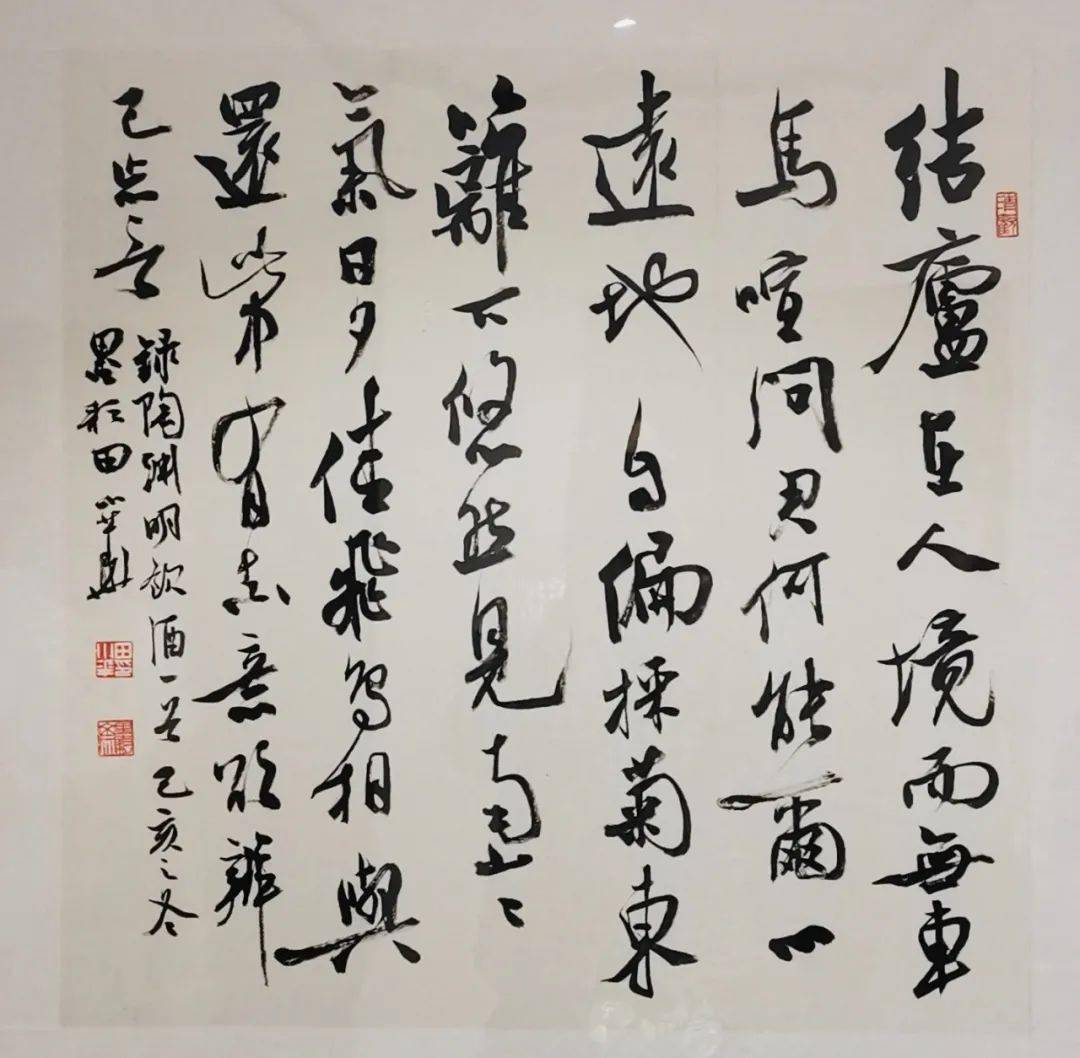 結廬在人境而無車
馬喧問君何能爾心
遠地自偏採菊東
籬下悠然見南山〻
氣日夕佳飛鳥相與
還此中有真意欲辨
已忘言
録陶渊明飲酒一首己亥之冬
田